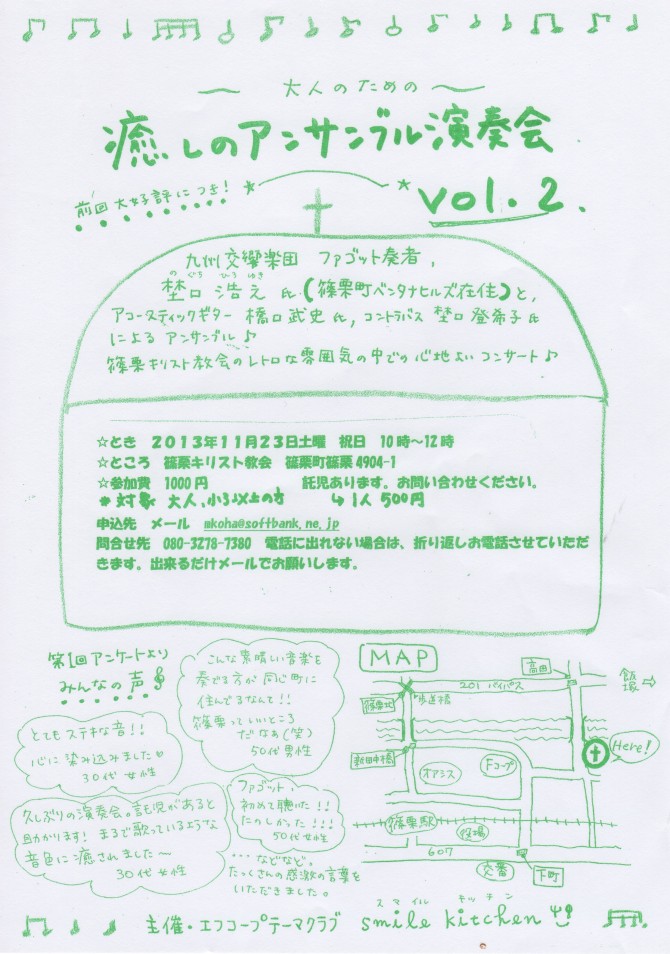 大人のための
癒しのアンサンブル演奏会
前回大好評につき!
vol.2.
九州交響楽団 ファゴット奏者,
のぐち ひろゆき
埜口浩之氏(篠栗町ベンタナヒルズ在住)と,
アコースティックギター 橋口武史氏,コントラバス 埜口登希子氏
による アンサンブル♪
篠栗キリスト教会のレトロな雰囲気の中での心地よいコンサート♪
☆とき 2013年11月23日土曜 祝日 10時~12時
☆ところ 篠栗キリスト教会 篠栗町篠栗4904-1
☆参加費 1000円 託児あります。お問い合わせください。
*対象 大人,小3以上の方 ↳1人500円
申込先 メール mkoha@softbank.ne.jp
問合せ先 080-3278-7380 電話に出れない場合は、折り返しお電話させていただ
きます。出来るだけメールでお願いします。
第1回アンケートより
みんなの声
とてもステキな音!!
心に染み込みました♡
30代女性
こんな素晴しい音楽を
奏でる方が同じ町に
住んでるなんて!!
篠栗っていいところ
だなぁ(笑)
50代男性
久しぶりの演奏会。託児があると
助かります! まるで歌っているような
音色に癒されました〜
30代女性
ファゴット,
初めて聴いた!!
たのしかった!!!
50代女性
・・・などなど。
たっくさんの感激の言葉を
いただきました。
MAP
高田
飯塚⇨
201バイパス
篠栗北
歩道橋
Here!
新田中橋
オアシス
Fコープ
篠栗駅
役場
607
交番
下町
スマイル キッチン
主催・エフコープテーマクラブ smile kitchen